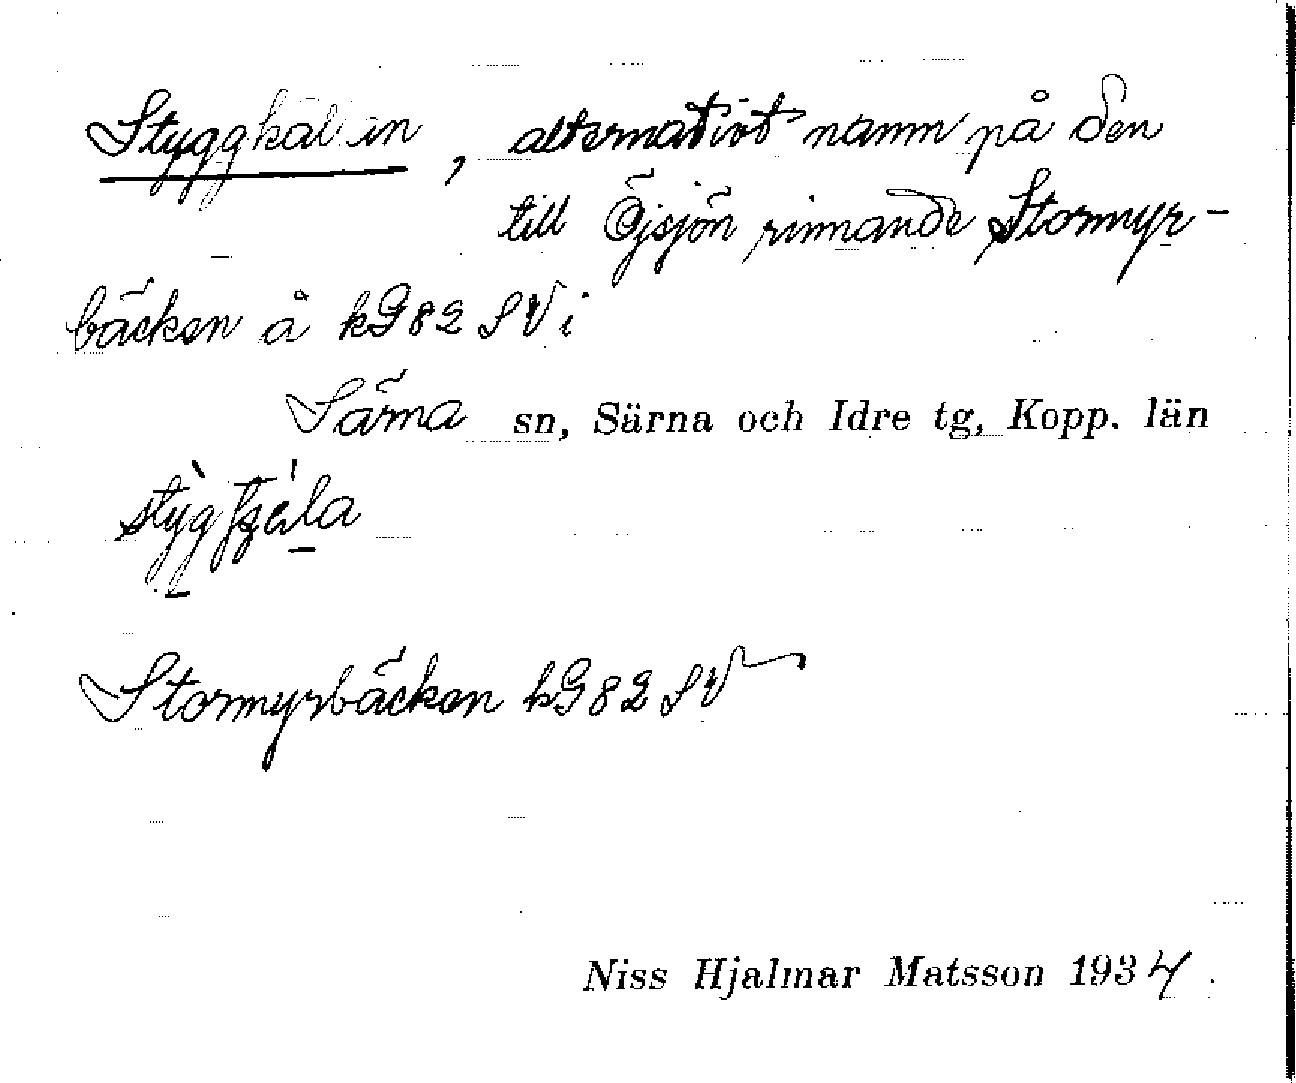 Styggkälen, alternativt namn på den
till Öjsjön rinnande Stormyr-
bäcken å kG82 SV i
Särna sn, Särna och Idre tg, Kopp. län
Stormyrbäcken kG82 SV
Niss Hjalmar Matsson 1934.